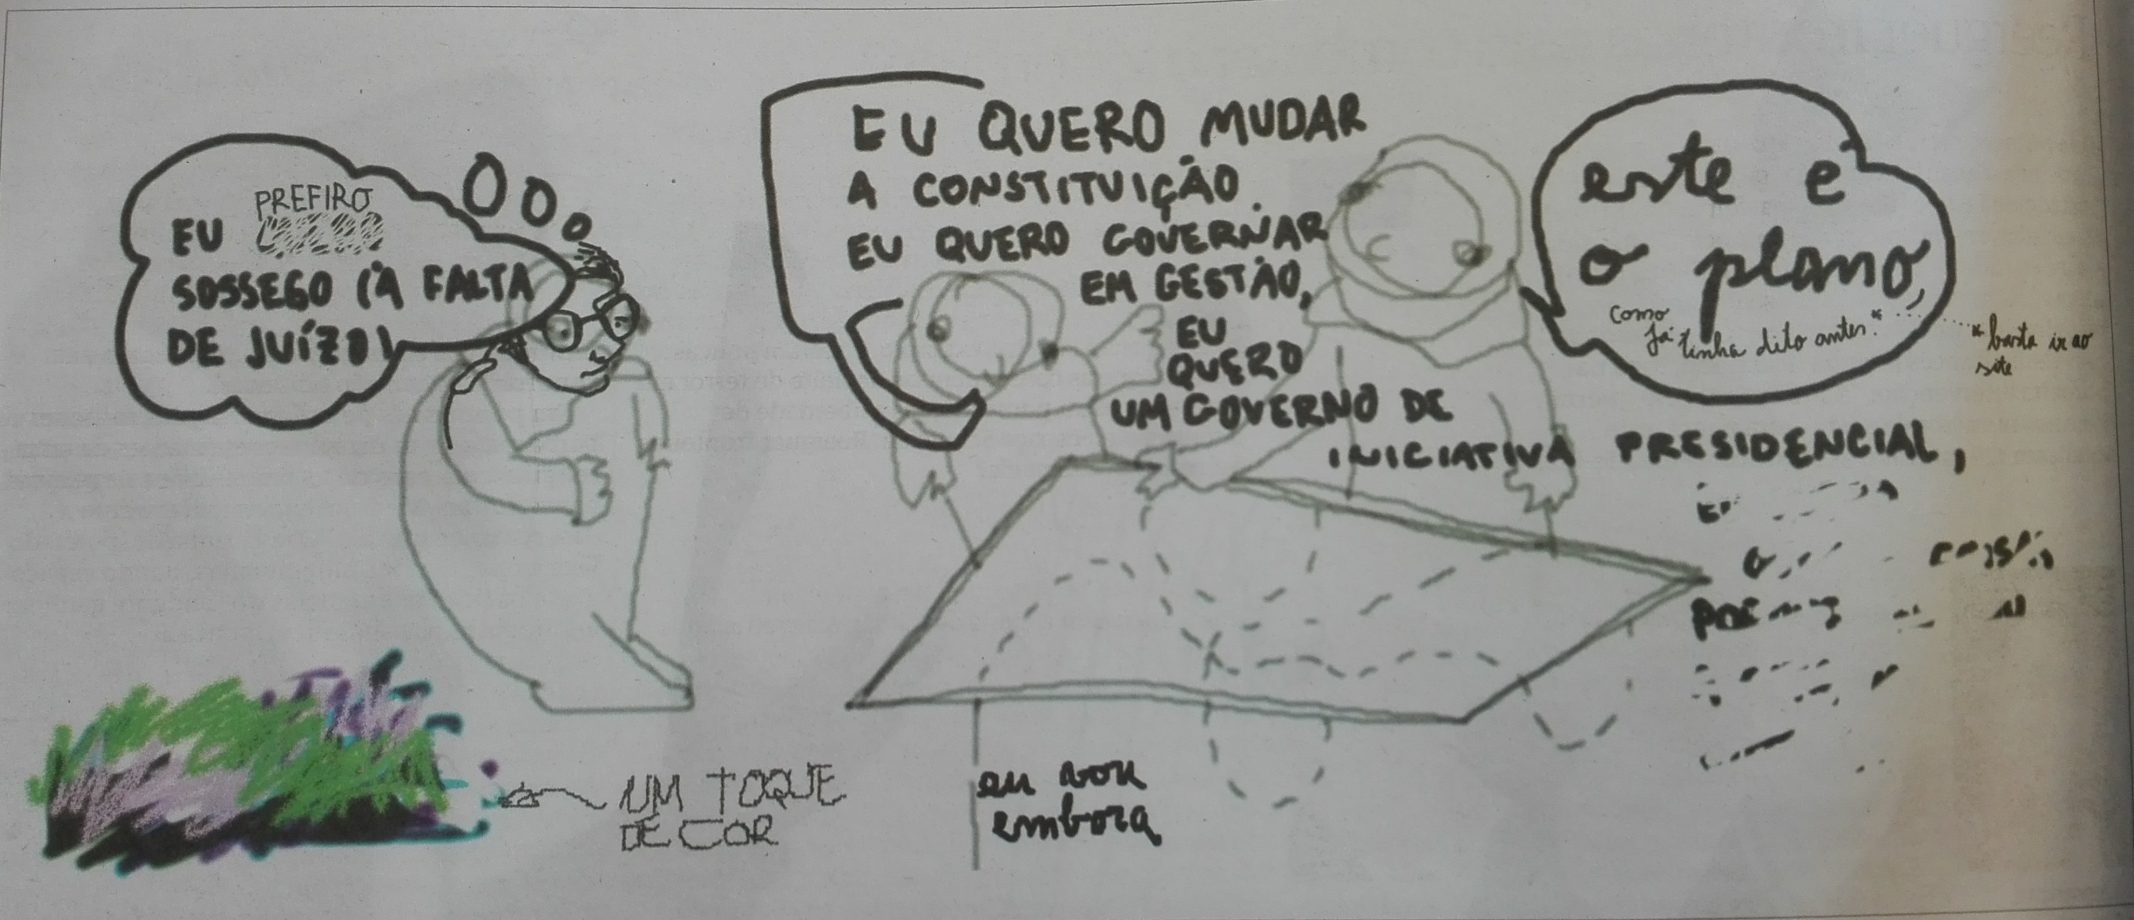 EU PREFIRO
SOSSEGO (À FALTA
DE JUÍZO)
EU QUERO MUDAR
A CONSTITUIÇÃO.
EU QUERO GOVERNAR
EM GESTÃO,
EU
QUERO
UM GOVERNO DE
INICIATIVA PRESIDENCIAL,
este é
o plano,
como
já tinha dito antes.*
*basta ir ao
site
UM TOQUE
DE COR
eu vou
embora